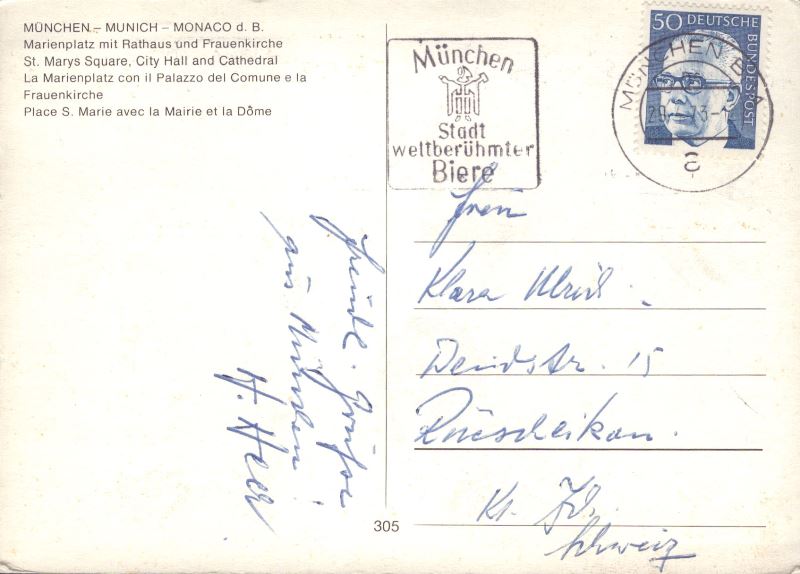 MÜNCHEN – MUNICH – MONACO d. B.
Marienplatz mit Rathaus und Frauenkirche
St. Marys Square, City Hall and Cathedral
La Marienplatz con il Palazzo del Comune e la
Frauenkirche
Place S. Marie avec la Mairie et la Dôme
München
Stadt
weltberühmter
Biere
50 DEUTSCHE
BUNDESPOST
MÜNCHEN
freundl. Grüsse
aus München
H. Heer
Frau
Klara
15
Rüeschlikon.
Kt. Zch.
Schweiz
305